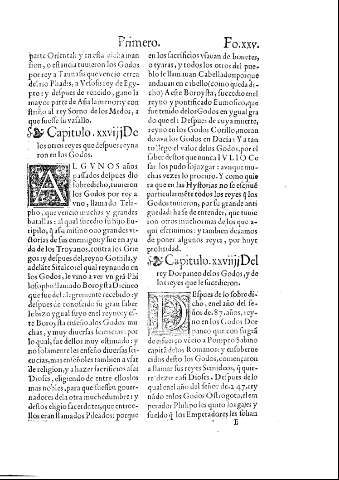 Primero.
Fo.xxv.
parte Oriental: y en esta dicha man
sion, o estancia tuuieron los Godos
por rey a Taunasu que vencio cerca
del rio Phasis, a Vesosrey de Egy-
pto: y despues de vencido, gano la
mayor parte de Asia la menor y con
stituto al rey Sorno de los Medos, a
que fuesse su vasallo.
Capitulo. xxvij De
los otros reyes que despues reyna
ron en los Godos.
ALGVNOS años
passados despues dlo
sobredicho, tuuieron
los Godos por rey a
vno, llamado Tele-
pho, que vencio muchas y grandes
batallas: al qual sucedio su hijo Eu-
ripilo, q̃ assi mismo
storias de sus enemigos: y fue en ayu
do de los Troyanos, contra los Grie
gos y despues del, reyno Gotila, y en
adelāte Sitalco: el qual reynando en
los Godos, le vino a ver vn grā Phi
losopho llamado Borosta Diceneo
que fue del alegremente recebido: y
despues de conoscido su gran saber
le hizo ygual suyo en el reyno: y es-
te Borosta mostro a los Godos mu
chas, y muy diuersas sciencias: por
lo qual, fue dellos muy estimado: y
no solamente les enseño diuersas sci
encias, mas enseñoles tambien a vsar
de religion, y a hazer sacrificios a sus
Dioses, eligiendo de entre ellos los
mas nobles, para que fuessen gouer-
nadores de la otra muchedumbre: y
destos eligio sacerdotes, que entre e-
llos eran llamados Pileados: porque
en los sacrificios vsauan de bonetes,
o tyaras, y todos los otros del pue-
blo se llamauan Cabellados porque
andauan en cabello (como queda di-
cho) A este Borosta, sucedio en el
reyno y pontificado Eumosico, que
fue tenido delos Godos en ygual gra
do que el: Despues de cuya muerte,
reyno en los Godos Corillo, moran
do aun los Godos en Dacia: Y a tan
to llego el valor delos Godos, por el
saber destos que nunca IVLIO Ce
sar los pudo sojuzgar: aunque mu-
chas vezes lo procuro. Y como quie
ra que en las Hystorias no se escriuē
particularmēte todos los reyes q̃ los
Godos tuuieron, por su grande anti
guedad: hase de entender, que tuuie
ron otros muchos mas de los que a-
qui escreuimos: y tambien dexamos
de poner algunos reyes, por huyr
prolixidad.
Capitulo. xxviij Del
rey Dorpaneo delos Godos, y de
los reyes que le sucedieron.
DEspues de lo sobredi-
cho, en el año del se-
ñor de. 87. años, rey-
no en los Godos Dor
paneo que con su grā
de esfuerço vēcio a Pompeo Sabino
capitā delos Romanos: y en soberue
cidos desto los Godos, començaron
a llamar sus reyes Semideos, q̃ quie-
re dezir casi Dioses. Despues de lo
qual en el año del señor de 247. rey
nādo en los Godos Ostrogoto, el em
perador Philipo les quito los gajes y
sueldo q̃ los Emperadores les solian
E